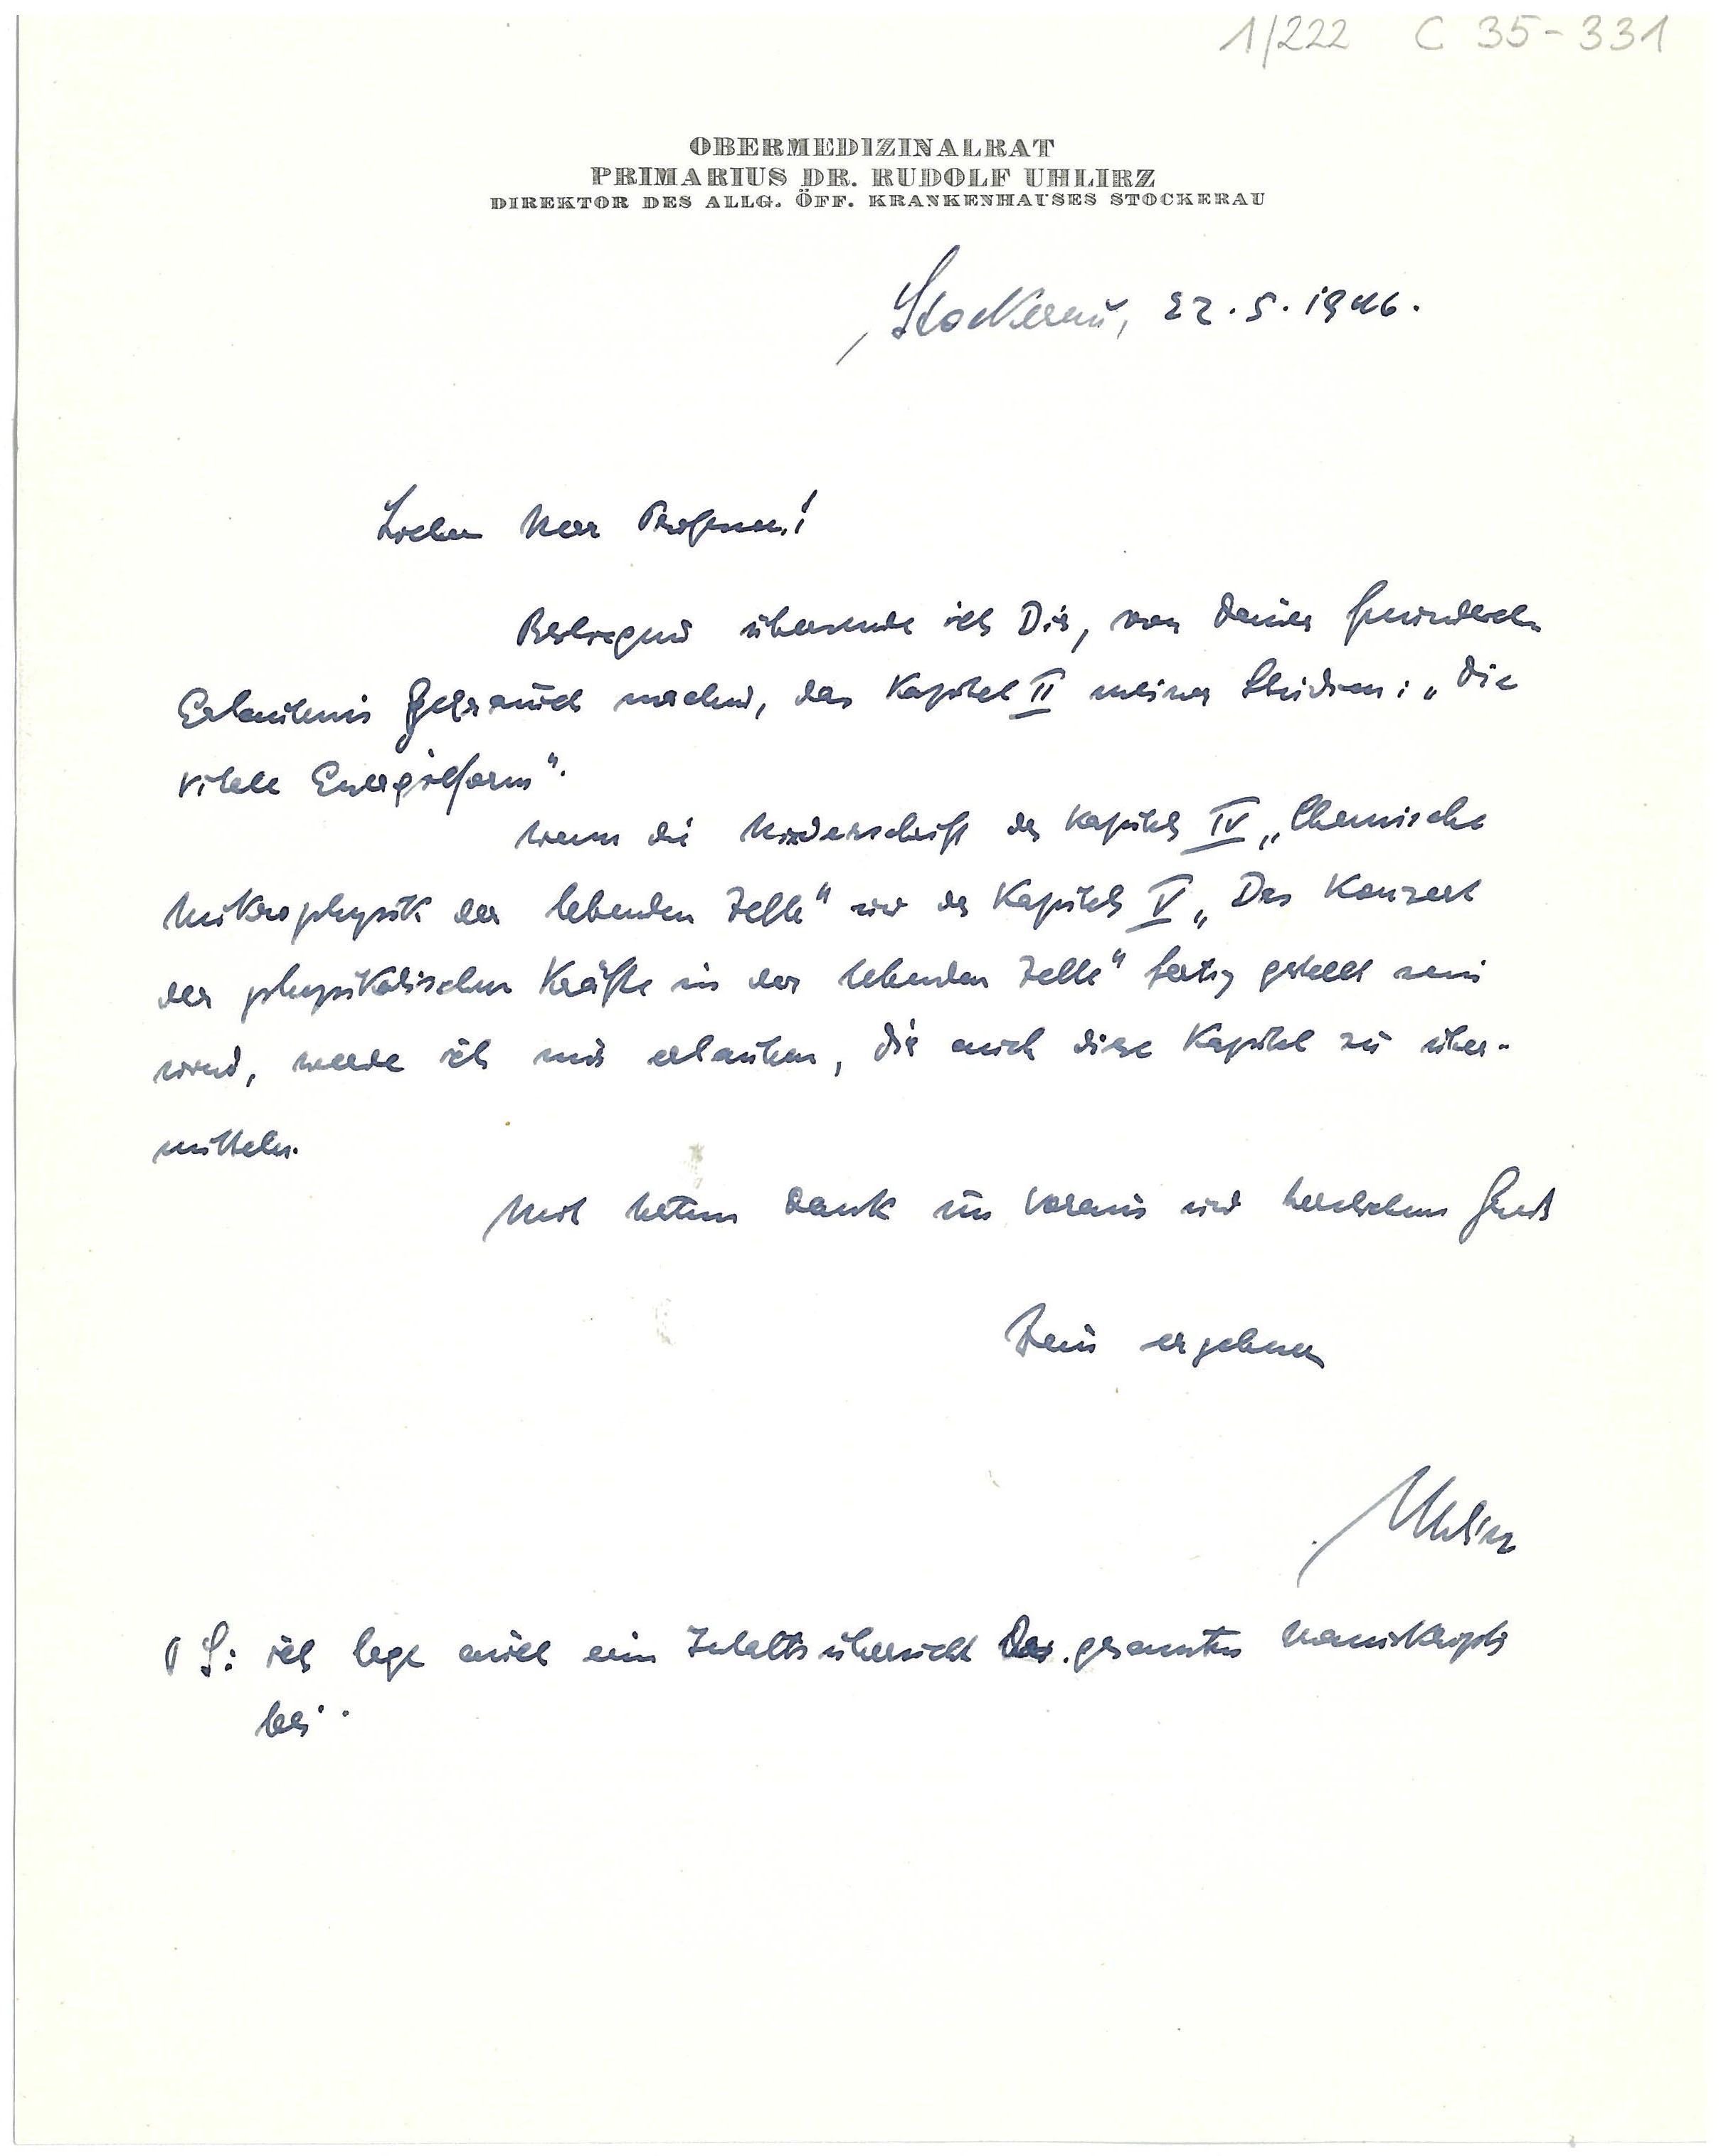 1/222 C 35-331
OBERMEDIZINALRAT
PRIMARIUS DR. RUDOLF UHLIRZ
DIREKTOR DES ALLG. ÖFF. KRANKENHAUSES STOCKERAU
Stockerau, 22.5.1946.
Lieber Herr Professor!
Beiliegend übersende ich Dir, von Deiner freundlichen
Erlaubnis Gebrauch machend, das Kapitel II meiner Studien: „Die
vitale Energieform".
Wenn die Niederschrift des Kapitels IV „Chemische
Mikrophysik der lebenden Zelle" und des Kapitels V „Das Konzert
der physikalischen Kräfte in der lebenden Zelle" fertig gestellt sein
wird, werde ich mir erlauben, Dir auch diese Kapitel zu über-
mitteln.
Mit bestem Dank im Voraus und herzlichem Gruß
Dein ergebener
Uhlirz
PS: ich lege auch eine Inhaltsübersicht des gesamten Manuskripts
bei.